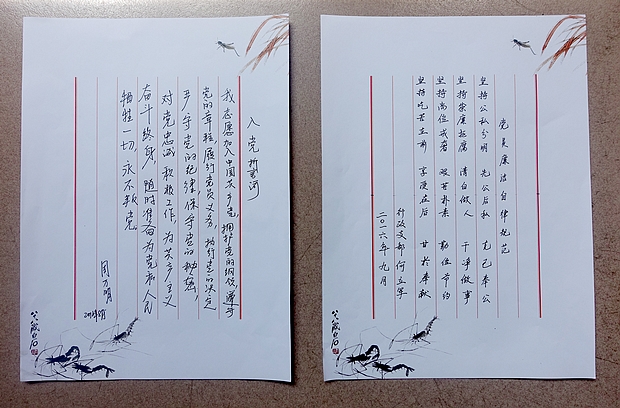 入党
我志愿加入中国共产党，拥护党的纲领，遵守
党的章程，履行党员义务，执行党的决定，
严守党的纪律，保守党的秘密，
对党忠诚，积极工作，为共产主义
奋斗终身，随时准备为党和人民
牺牲一切，永不叛党。
周万明
党员廉洁自律规范
坚持公私分明 先公后私 克己奉公
坚持崇廉拒腐 清白做人 干净做事
坚持尚俭戒奢 艰苦朴素 勤俭节约
坚持吃苦在前 享受在后 甘于奉献
行政支部何立军
二〇一六年九月